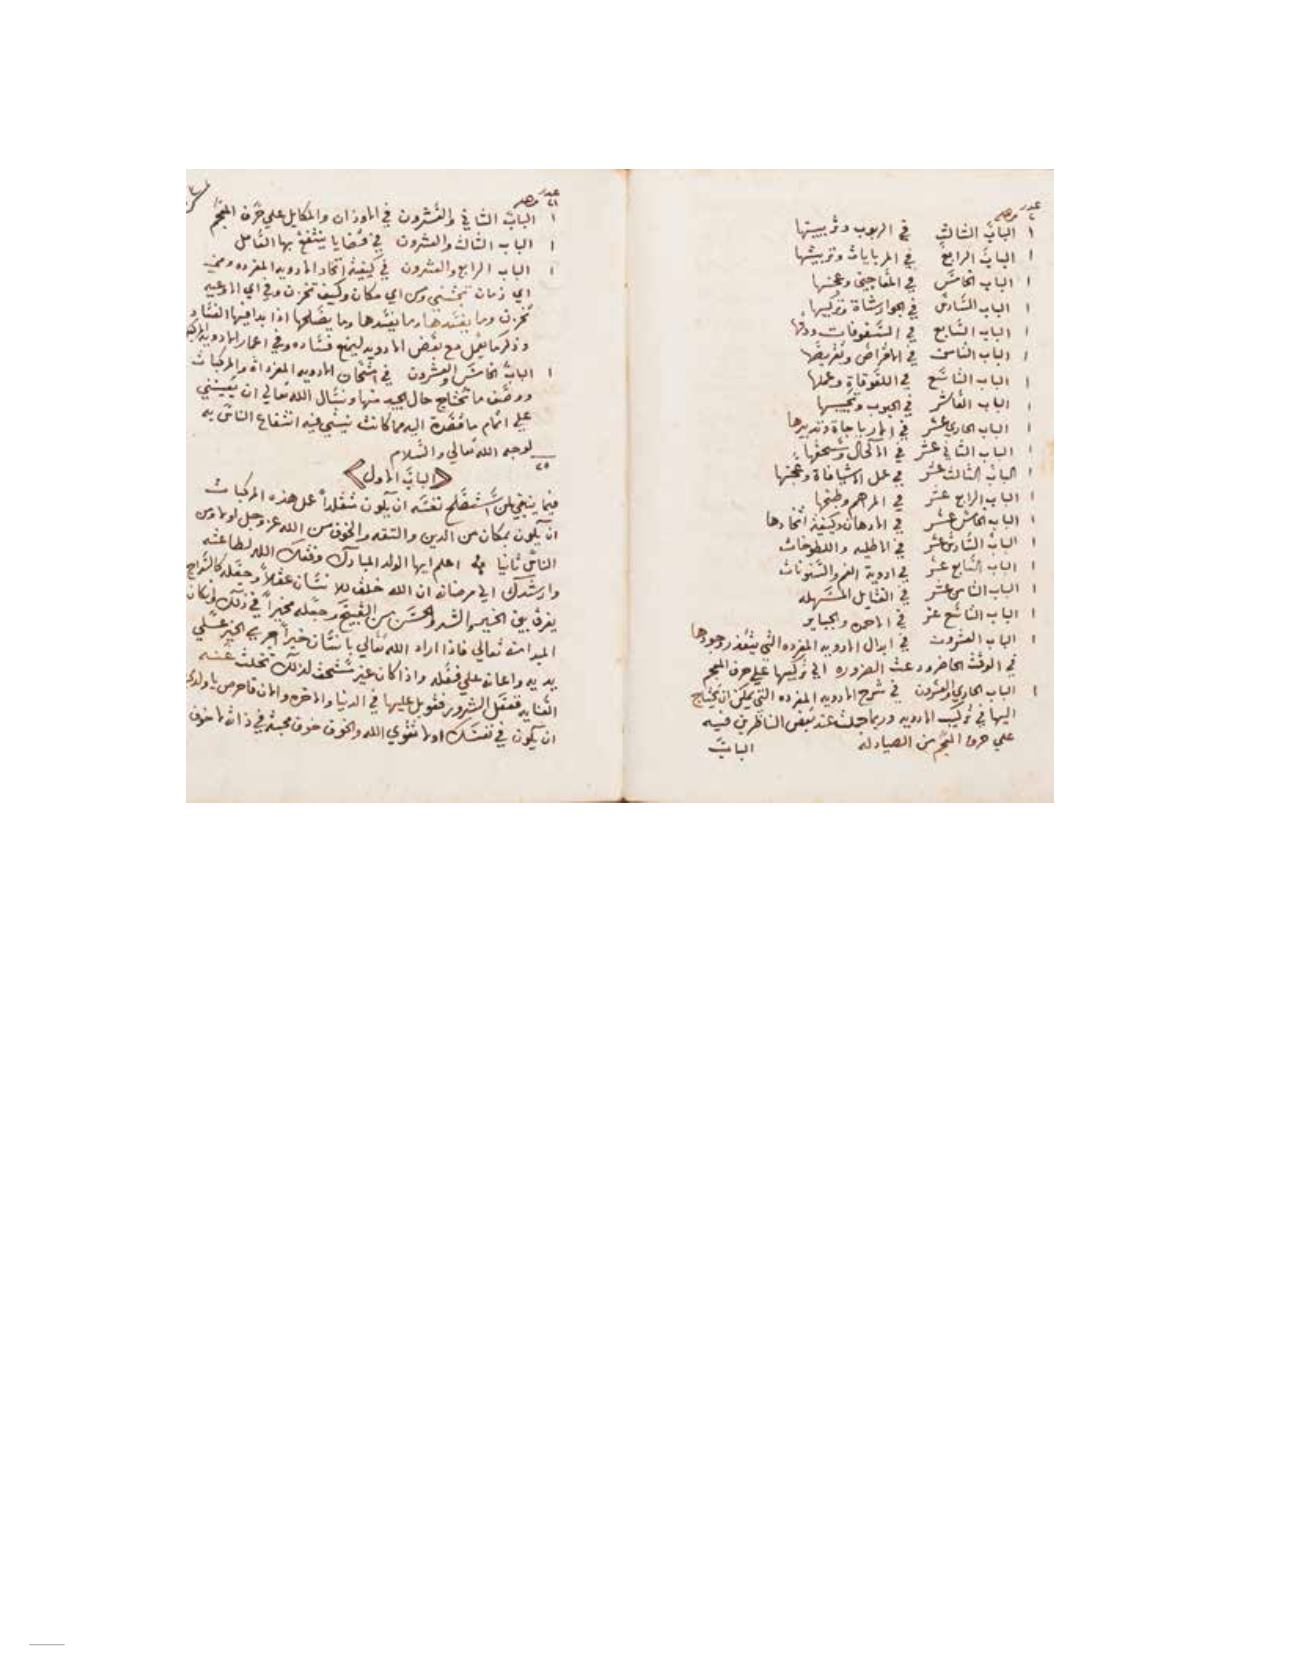 عدد
١ الباب الثالث في الربوب وتربيتها
١ الباب الرابع في المربايات وتربيتها
١ الباب الخامس في المعاجين وعجنها
١ الباب السادس في الجوارشاة وتركيبها
١ الباب السابع في السفوفات ودقها
١ الباب الثامن في الاقراص وتقريصها
١ الباب التاسع في اللعوقاة وعملها
١ الباب العاشر في الحبوب وتحبيبها
١ الباب الحادي عشر في الارياجاة وتدبيرها
١ الباب الثاني عشر في الاكحال وسحقها
١ الباب الثالث عشر في عمل الاشيافاة وعجنها
١ الباب الرابع عشر في المراهم وطبخها
١ الباب الخامس عشر في الادهان وكيفية اتخادها
١ الباب السادس عشر في الاطليه واللطوخات
١ الباب السابع عشر في ادوية الفم والسنونات
١ الباب الثامن عشر في الفتايل المسهله
١ الباب التاسع عشر في والجباير
١ الباب العشرون في ابدال الادويه المفرده التي يتعذر وجودها
في الوقت الحاضر وعند الضروره الي تركيبها علي حرف المعجم
١ الباب الحادي والعشرون في شرح الادويه المفرده التي يمكن ان يحتاج
اليها في تركيب الادويه وربما جهلت عند بعض الناظرين فيه
علي حرف المعجم من الصيادله
الباب
عدد
١ الباب الثاني والعشرون في الاوزان والمكايل علي حرف المعجم
١ الباب الثالث والعشرون في وصايا ينتفع بها العامل
١ الباب الرابع والعشرون في كيفية اتخاد الادويه المفرده وفي
اي زمان تجتني ومن اي مكان وكيف تخزن وفي اي الاوعيه
تخزن وما يفسدها وما يصلحها اذا بدا فيها الفساد
وذكر ما يعمل مع بعض الادويه ليمنع فساده وفي اعمار الادويه المركبه
١ الباب الخامس والعشرون في امتحان الادويه المفرداة والمركبات
ووصف ما تحتاج حال الجيد منها ونسال الله تعالي ان يعينني
علي اتمام ما قصدة اليه مما كانت نيتي فيه انتفاع الناس به
٢٥ لوجه الله تعالي والسلام
الباب الاول
فيما ينبغي لمن استصلح نفسه ان يكون متقلداً عمل هذه المركبات
ان يكون بمكان من الدين والثقه والخوف من الله عز وجل اولا ومن
الناس ثانيا اعلم ايها الولد المبارك وفقك الله لطاعته
وارشدك الي مرضاته ان الله خلق للانسان عقلاً وجعله كالسراج
يفرق بين الخير والشر والحسن من القبيح وجعله مخيراً في ذلك وكان
المبدا منه تعالي فاذا اراد الله تعالي بانسان خيراً اجري الخير علي
يديه واعانه علي فعله واذا كان غير مستحق لذلك تخلت عنه
العنايه ففعل الشرور فقوبل عليها في الدنيا والاخره والان فاحرص يا ولدي
ان يكون في نفسك اولا تقوي الله والخوف خوف محبة في ذاته لا خوف